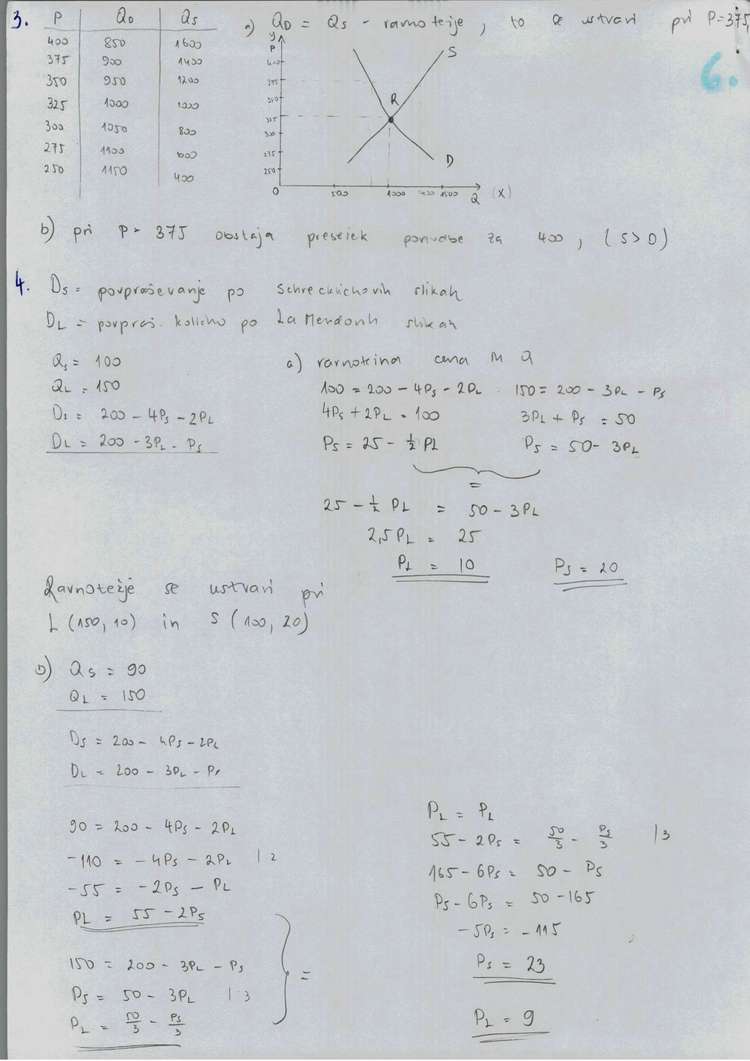 3. P Q_D Q_S a) Q_D = Q_S - ravnotežje, to se ustvari pri P=375,
400 850 1600
375 900 1400
350 950 1200
325 1000 1000
300 1050 800
275 1100 600
250 1150 400
y
P
S
R
D
400
350
325
300
275
250
0 500 1000 1500 Q (X)
6.
b) pri P = 375 obstaja presežek ponudbe za 400, (S>D)
4. D_S = povpraševanje po Schrecklichovih slikah
D_L = povpraš. količino po La Merdovih slikah
Q_S = 100 a) ravnotežna cena in Q
Q_L = 150 100 = 200 - 4P_S - 2P_L 150 = 200 - 3P_L - P_S
D_S = 200 - 4P_S - 2P_L 4P_S + 2P_L = 100 3P_L + P_S = 50
D_L = 200 - 3P_L - P_S P_S = 25 - ½ P_L P_S = 50 - 3P_L
=
25 - ½ P_L = 50 - 3P_L
2,5P_L = 25
P_L = 10 P_S = 20
Ravnotežje se ustvari pri
L (150, 10) in S (100, 20)
b) Q_S = 90
Q_L = 150
D_S = 200 - 4P_S - 2P_L
D_L = 200 - 3P_L - P_S
90 = 200 - 4P_S - 2P_L
-110 = -4P_S - 2P_L |:2
-55 = -2P_S - P_L
P_L = 55 - 2P_S
150 = 200 - 3P_L - P_S
P_S = 50 - 3P_L |:3
P_L = 50/3 - P_S/3
=
P_L = P_L
55 - 2P_S = 50/3 - P_S/3 |·3
165 - 6P_S = 50 - P_S
P_S - 6P_S = 50 - 165
-5P_S = -115
P_S = 23
P_L = 9